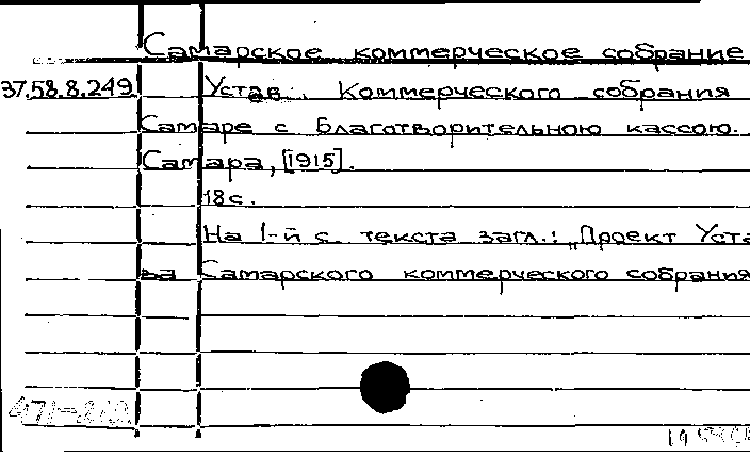 Самарское коммерческое собрание
37.58.8.249 Устав. Коммерческого собрания
Самаре с Благотворительною кассою.
Самара, [1915].
18 с.
На 1-й с. текста загл.: „Проект Уста
ва Самарского коммерческого собрания